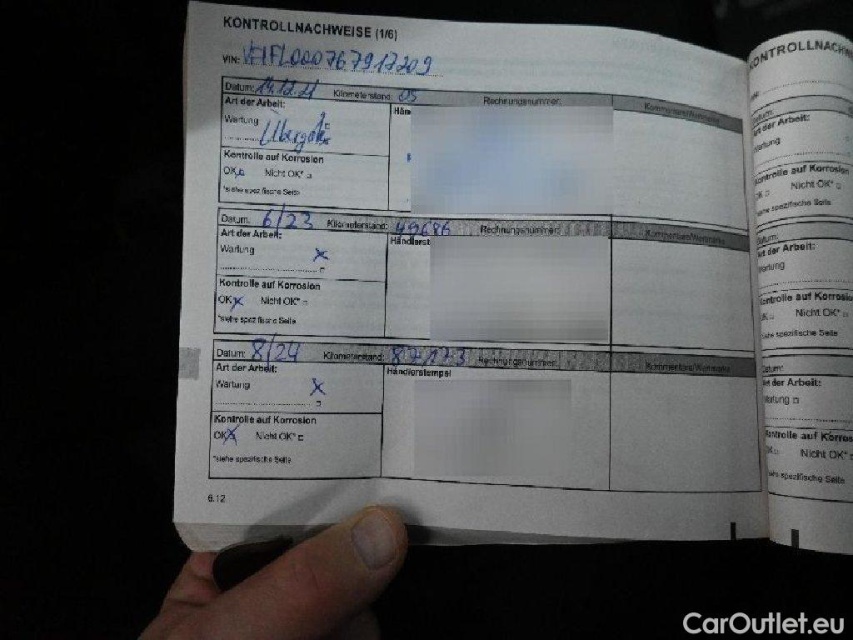 KONTROLLNACHWEISE (1/6)
VIN: VF1FL000767917209
Datum: 14.12.21 Kilometerstand: 05 Rechnungsnummer: Kommentare/Vermerke
Art der Arbeit: Hän
Wartung
Übergabe
Kontrolle auf Korrosion
OK Nicht OK*
*siehe spezifische Seite
Datum: 6/23 Kilometerstand: 49686 Rechnungsnummer: Kommentare/Vermerke
Art der Arbeit: Händlerst
Wartung x
Kontrolle auf Korrosion
OK x Nicht OK*
*siehe spezifische Seite
Datum: 8/24 Kilometerstand: 87173 Rechnungsnummer: Kommentare/Vermerke
Art der Arbeit: Händlerstempel
Wartung x
Kontrolle auf Korrosion
OK x Nicht OK*
*siehe spezifische Seite
6.12
KONTROLLNACHW
Datum:
Art der Arbeit:
Wartung
Kontrolle auf Korrosion
OK Nicht OK*
siehe spezifische Seite
Datum:
Art der Arbeit:
Wartung
Kontrolle auf Korrosio
Nicht OK*
siehe spezifische Seite
Datum:
Art der Arbeit:
Wartung
Kontrolle auf Korros
Nicht OK*
siehe spezifische Seite
CarOutlet.eu